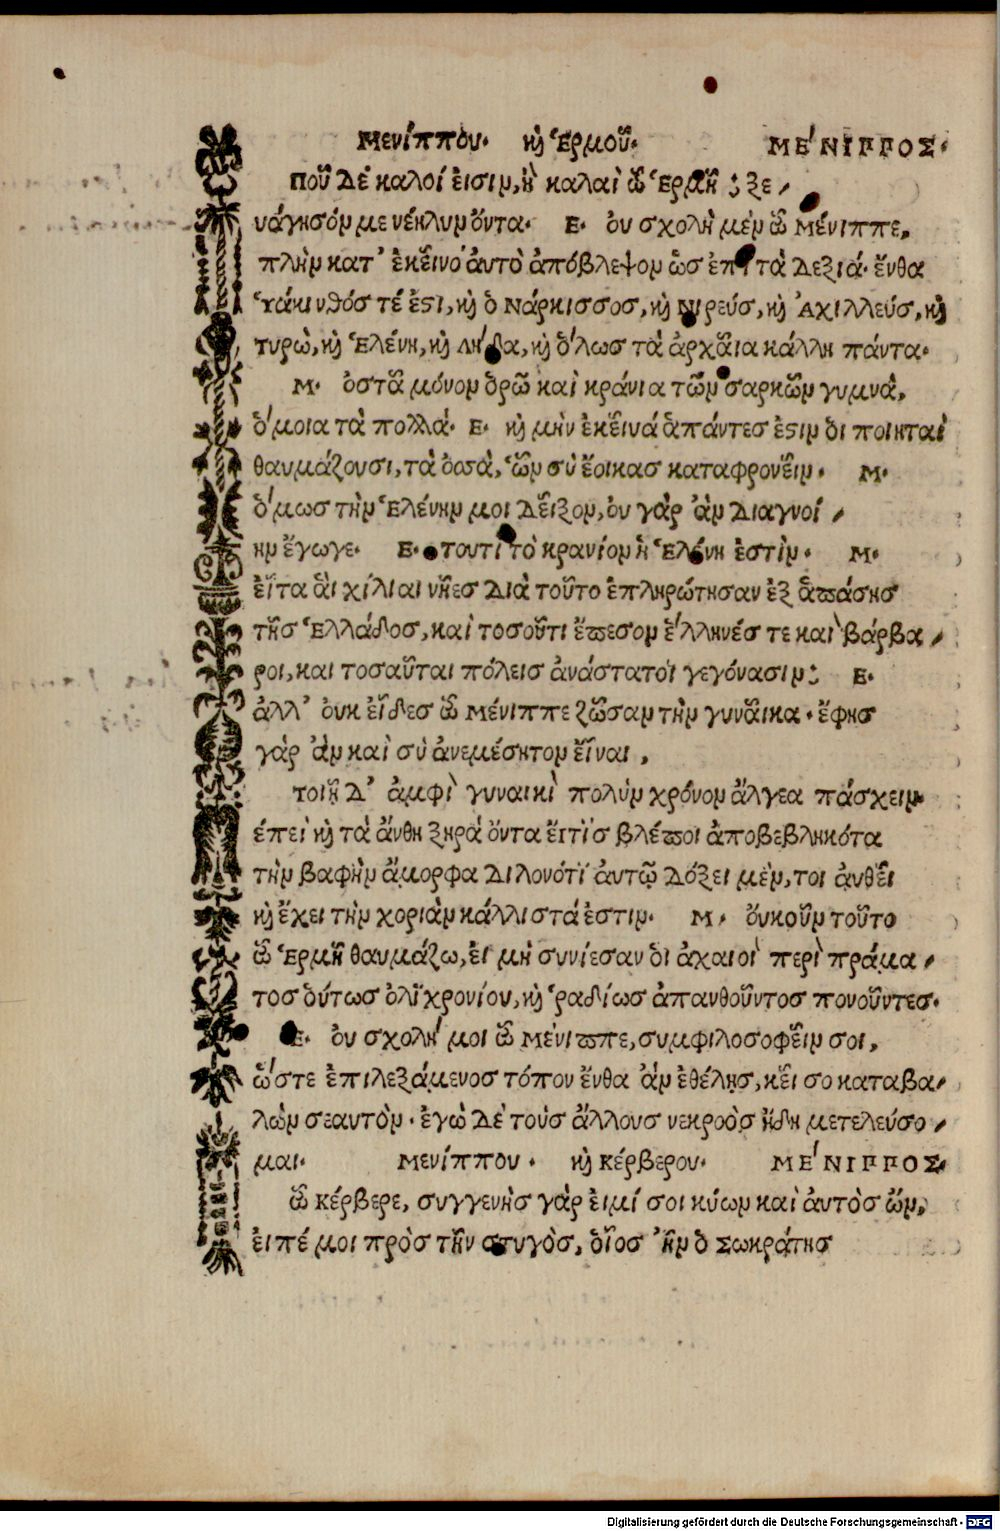 Μενίππου. κỳ Ἑρμοῦ. ΜΕ'ΝΙΡΡΟΣ.
Ποῦ Δὲ καλοί ἐισιν, ἢ καλαὶ ὦ Ἑρμῆ ; ξε
νάγησόν με νέηλυν ὄντα. Ε. ὀυ σχολὴ μὲν ὦ Μένιππε,
πλὴν κατ' ἐκεῖνο ἀυτὸ ἀπόβλεψον ὡσ ἐπὶ τὰ Δεξιά. ἔνθα
Ὑάκινθόσ τέ ἐϛι, κỳ ὁ Νάρκισσοσ, κỳ Νιρεύσ, κỳ Ἀχιλλεύσ, κỳ
Τυρὼ, κỳ Ἑλένη, κỳ Λήδα, κỳ ὅλωσ τὰ ἀρχᾶια κάλλη πάντα.
Μ. ὀστᾶ μόνον ὁρῶ καὶ κράνια τῶν σαρκῶν γυμνὰ,
ὅμοια τὰ πολλά. Ε. κỳ μὴν ἐκεῖινά ἁπάντεσ ἐϛιν ὁι ποιηταὶ
θαυμάζουσι, τὰ ὀσᾶ, ὧν σὺ ἔοικασ καταφρονεῖιν. Μ.
ὅμωσ τὴν Ἑλένην μοι Δεῖιξον, ὀυ γὰρ ἂν Διαγνοί
ην ἔγωγε. Ε. τουτὶ τὸ κρανίον ἡ Ἑλένη ἐστὶν. Μ.
ἐῖτα ἁι χίλιαι νῆεσ Διὰ τοῦτο ἐπληρώτησαν ἐξ ἁπάσησ
τῆσ Ἑλλάδοσ, καὶ τοσοῦτι ἔπεσον ἕλληνέσ τε καὶ βάρβα
ροι, και τοσαῦται πόλεισ ἀνάστατοι γεγόνασιν; Ε.
ἀλλ' ὀυκ ἐῖδεσ ὦ Μένιππε ζῶσαν τὴν γυνᾶικα. ἔφησ
γὰρ ἂν καὶ σὺ ἀνεμέσητον ἐῖναι,
τοιῇ Δ' ἀμφὶ γυναικὶ πολὺν χρόνον ἄλγεα πάσχειν.
ἐπεὶ κỳ τὰ ἄνθη ξηρά ὄντα ἔιτὶσ βλέποι ἀποβεβληκότα
τὴν βαφὴν ἄμορφα Διλονότὶ ἀυτῷ Δόξει μὲν, τοι ἀνθεῖι
κỳ ἔχει τὴν χοριὰν κάλλιστά ἐστιν. Μ. ὄυκουν τοῦτο
ὦ Ἑρμῆ θαυμάζω, ἐι μὴ συνίεσαν ὁι ἀχαιοὶ περὶ πράμα
τοσ ὁύτωσ ὀλιχρονίου, κỳ ῥαδίωσ ἀπανθοῦντοσ πονοῦντεσ.
Ε. ὀυ σχολή μοι ὦ Μένιππε, συμφιλοσοφεῖιν σοι,
ὥστε ἐπιλεξάμενοσ τόπον ἔνθα ἂν ἐθέλῃσ, κεῖι σο καταβα
λὼν σεαυτὸν. ἐγὼ Δὲ τοὺσ ἄλλουσ νεκροὸσ ἤδη μετελεύσο
μαι. Μενίππου. κỳ Κέρβερου. ΜΕ'ΝΙΡΡΟΣ.
ὦ Κέρβερε, συγγενὴσ γάρ ἐιμί σοι κύων καὶ ἀυτὸσ ὤν,
ἐιπέ μοι πρὸσ τῆν στυγὸσ, ὁῖοσ ἦν ὁ Σωκράτησ
Digitalisierung gefördert durch die Deutsche Forschungsgemeinschaft - DFG